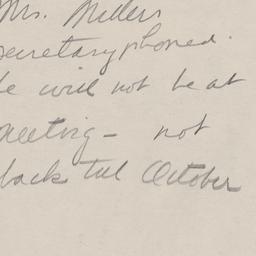 Mrs. Millers
secretary phoned.
He will not be at
meeting - not
back till October